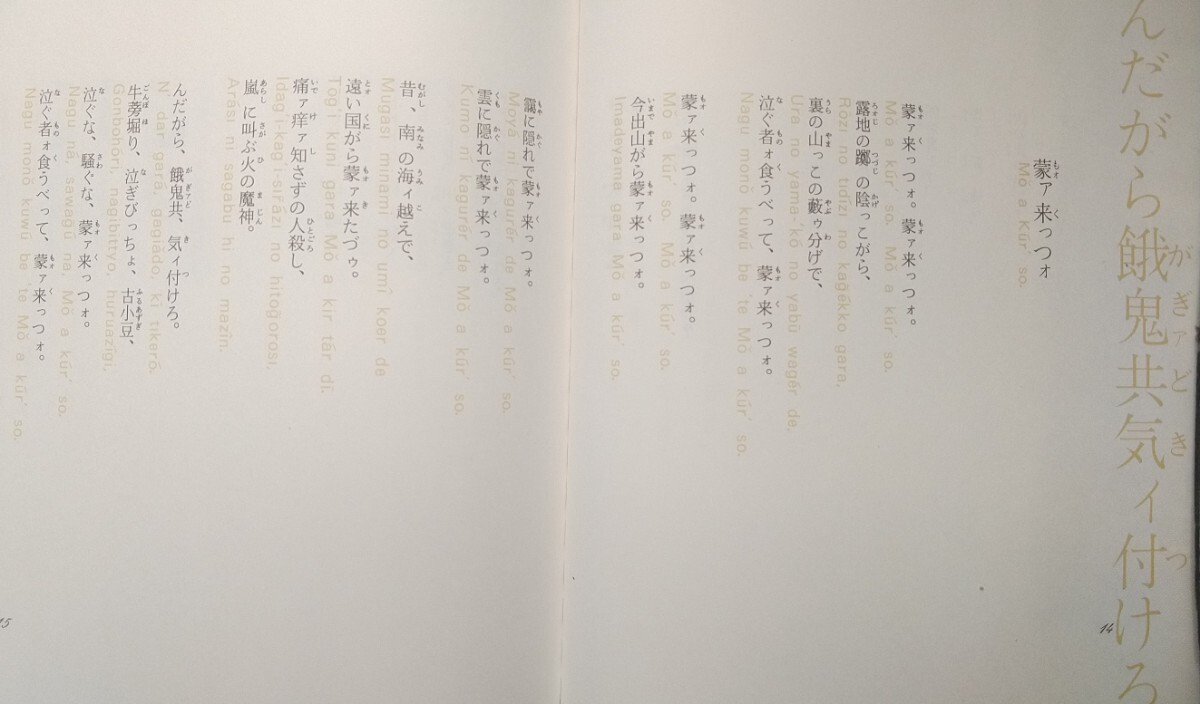 んだがら餓鬼共気ィ付けろ
蒙ァ来っつォ
Mō a kūr' so.
蒙ァ来っつォ。蒙ァ来っつォ。
Mō a kūr' so. Mō a kūr' so.
露地の躑躅の陰っこがら、
Rōzi no tidīzi no kagēkko gara,
裏の山っこの藪ゥ分げで、
Ura no yama-'kō no yabū wagēr de,
泣ぐ者ォ食うべって、蒙ァ来っつォ。
Nagu monō kuwū be 'te Mō a kūr' so.
蒙ァ来っつォ。蒙ァ来っつォ。
Mō a kūr' so. Mō a kūr' so.
今出山がら蒙ァ来っつォ。
Imadeyama gara Mō a kūr' so.
14
靄に隠れで蒙ァ来っつォ。
Moya nī kagurēr de Mō a kūr' so.
雲に隠れで蒙ァ来っつォ。
Kumo nī kagurēr de Mō a kūr' so.
昔、南の海ィ越えで、
Mugasi minami no umī koer de
遠い国がら蒙ァ来たづゥ。
Tog i kuni gara Mō a kir tār dī.
痛ァ痒ァ知さずの人殺し、
Idag i-kag i-sirāzi no hitogorosi,
嵐に叫ぶ火の魔神。
Arasi ni sagabu hi no mazin.
んだがら、餓鬼共、気ィ付けろ。
N, dar, gara, gagiādo, kī tikerō.
牛蒡堀り、泣ぎびっちょ、古小豆、
Gonbohōri, nagibittyo, huruazīgi,
泣ぐな、騒ぐな、蒙ァ来っつォ。
Nagū nā, sawagū na, Mō a kūr' so.
泣ぐ者ォ食うべって、蒙ァ来っつォ。
Nagu monō kuwū be 'te Mō a kūr' so.
15